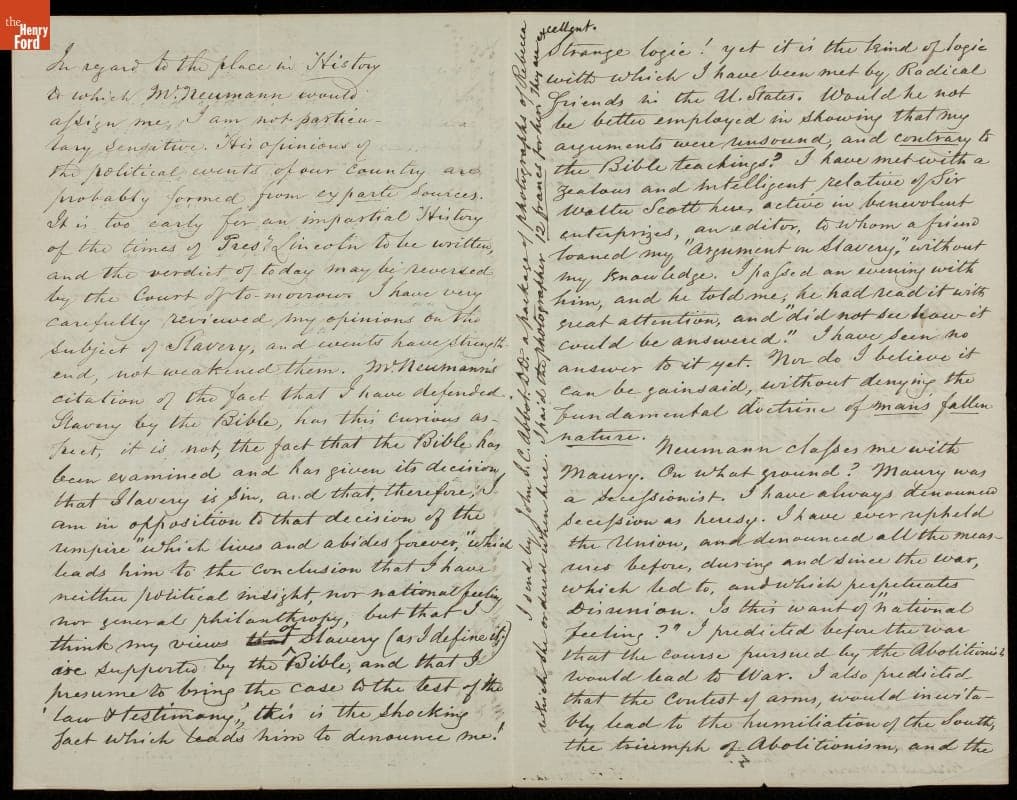 the
Henry
Ford
In regard to the place in History
to which Mr. Neumann would
assign me, I am not particu-
lary sensitive. His opinions of
the political events of our Country are
probably formed from exparte sources.
It is too early for an impartial History
of the times of Prest. Lincoln to be written,
and the verdict of today may be reversed
by the Court of to-morrow. I have very
carefully reviewed my opinions on the
subject of Slavery, and events have strength-
end, not weakened them. Mr. Neumann's
citation of the fact that I have defended
Slavery by the Bible, has this curious as-
pect, it is not, the fact that the Bible has
been examined and has given its decision
that Slavery is Sin, and that, therefore, I
am in opposition to that decision of the
umpire "which lives and abides forever," which
leads him to the conclusion that I have
neither political insight, nor national feeling
nor general philanthropy, but that I
think my views of Slavery (as I define it,)
are supported by the Bible, and that I
presume to bring the case to the test of the
"law & testimony", this is the shocking
fact which leads him to denounce me!
I send by John S. C. Abbot. D.D. a package of photographs of Rebecca
which she ordered when here. I paid the photographer 12 francs for them. They are
excellent.
Strange logic! yet it is the kind of logic
with which I have been met by Radical
friends in the U. States. Would he not
be better employed in showing that my
arguments were unsound, and contrary to
the Bible teachings? I have met with a
zealous and intelligent relative of Sir
Walter Scott here, active in benevolent
enterprizes, an editor, to whom a friend
loaned my "Argument on Slavery," without
my knowledge. I passed an evening with
him, and he told me, he had read it with
great attention, and "did not see how it
could be answered." I have seen no
answer to it yet. Nor do I believe it
can be gainsaid, without denying the
fundamental doctrine of man's fallen
nature.
Neumann classes me with
Maury. On what ground? Maury was
a Secessionist. I have always denounced
Secession as heresy. I have ever upheld
the Union, and denounced all the meas-
ures before, during and since the war,
which led to, and which perpetuates
Disunion. Is this want of "national
feeling?" I predicted before the war
that the course pursued by the Abolitionists
would lead to War. I also predicted
that the contest of arms, would inevita-
bly lead to the humiliation of the South,
the triumph of Abolitionism, and the